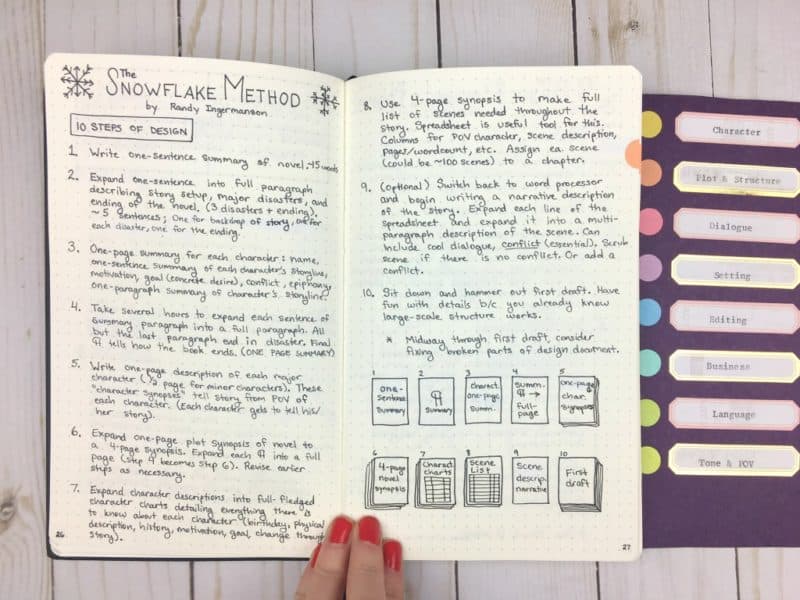 The
SNOWFLAKE METHOD
by Randy Ingermanson
10 STEPS OF DESIGN
1. Write one-sentence summary of novel. ~15 words
2. Expand one-sentence into full paragraph
describing story setup, major disasters, and
ending of the novel. (3 disasters + ending).
~5 sentences; One for backdrop of story, one for
each disaster, one for the ending.
3. One-page summary for each character: name,
one-sentence summary of each character's storyline,
motivation, goal (concrete desire), conflict, epiphany,
one-paragraph summary of character's storyline.
4. Take several hours to expand each sentence of
summary paragraph into a full paragraph. All
but the last paragraph end in disaster. Final
¶ tells how the book ends. (ONE PAGE SUMMARY)
5. Write one-page description of each major
character (1/2 page for minor characters). These
"character synopses" tell story from POV of
each character. (Each character gets to tell his/
her story).
6. Expand one-page plot synopsis of novel to
a 4-page synopsis. Expand each ¶ into a full
page (step 4 becomes step 6). Revise earlier
steps as necessary.
7. Expand character descriptions into full-fledged
character charts detailing everything there is
to know about each character (birthday, physical
description, history, motivation, goal, change through
story).
26
8. Use 4-page synopsis to make full
list of scenes needed throughout the
story. Spreadsheet is useful tool for this.
Columns for POV character, scene description,
pages/wordcount, etc. Assign ea. scene
(could be ~100 scenes) to a chapter.
9. (optional) Switch back to word processor
and begin writing a narrative description
of the story. Expand each line of the
spreadsheet and expand it into a multi-
paragraph description of the scene. Can
include cool dialogue, conflict (essential). Scrub
scene if there is no conflict. Or add a
conflict.
10. Sit down and hammer out first draft. Have
fun with details b/c you already know
large-scale structure works.
* Midway through first draft, consider
fixing broken parts of design document.
1 2 3 4 5
one-
sentence
summary
¶
summary
charact.
one-page
summ.
summ.
¶ →
full-
page
one-page
char.
synopses
6 7 8 9 10
4-page
novel
synopsis
Charact
charts
Scene
List
Scene
descrip.
narrative
First
draft
27
Character
Plot & Structure
Dialogue
Setting
Editing
Business
Language
Tone & POV